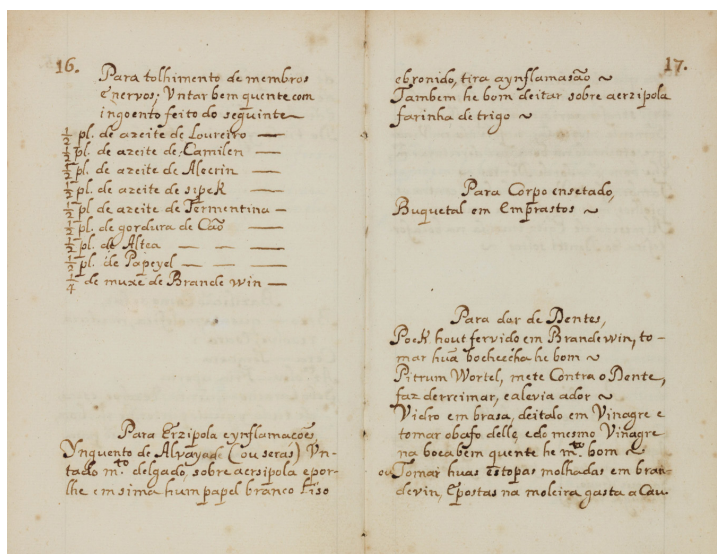 16.
Para tolhimento de membros
e nervos; Vntar bem quente com
ingoento feito do seguinte
½ pl. de azeite de Loureiro —
½ pl. de azeite de Camilen —
½ pl. de azeite de Alecrin —
½ pl. de azeite de sipek —
½ pl. de azeite de Termentina —
½ pl. de gordura de Cão —
½ pl. de Altea — — —
½ pl. de Papeyel — — —
¼ de muxe de Brande win —
Para Erzipola eynflamações
Ynguento de Alvayade (ou seras) Vn-
tado mto. delgado, sobre aersipola epor-
lhe emsima hum papel branco liso
17.
ebronido, tira aynflamasão ~
Tambem he bom deitar sobre aerzipola
farinha de trigo ~
Para Corpo ensetado,
Buquetal em Emprastos ~
Para dor de Dentes,
Pock hout fervido em Brandewin, to-
mar huã bochecha he bom ~
Pitrum Wortel, mete Contra o Dente,
faz derreimar, ealevia ador ~
Vidro em brasa, deitalo em Vinagre e
tomar obafo delle, edo mesmo Vinagre
na boca bem quente he mto. bom ~
ou Tomar huas Estopas molhadas em bran-
devin, Epostas na moleira gasta a Cau.